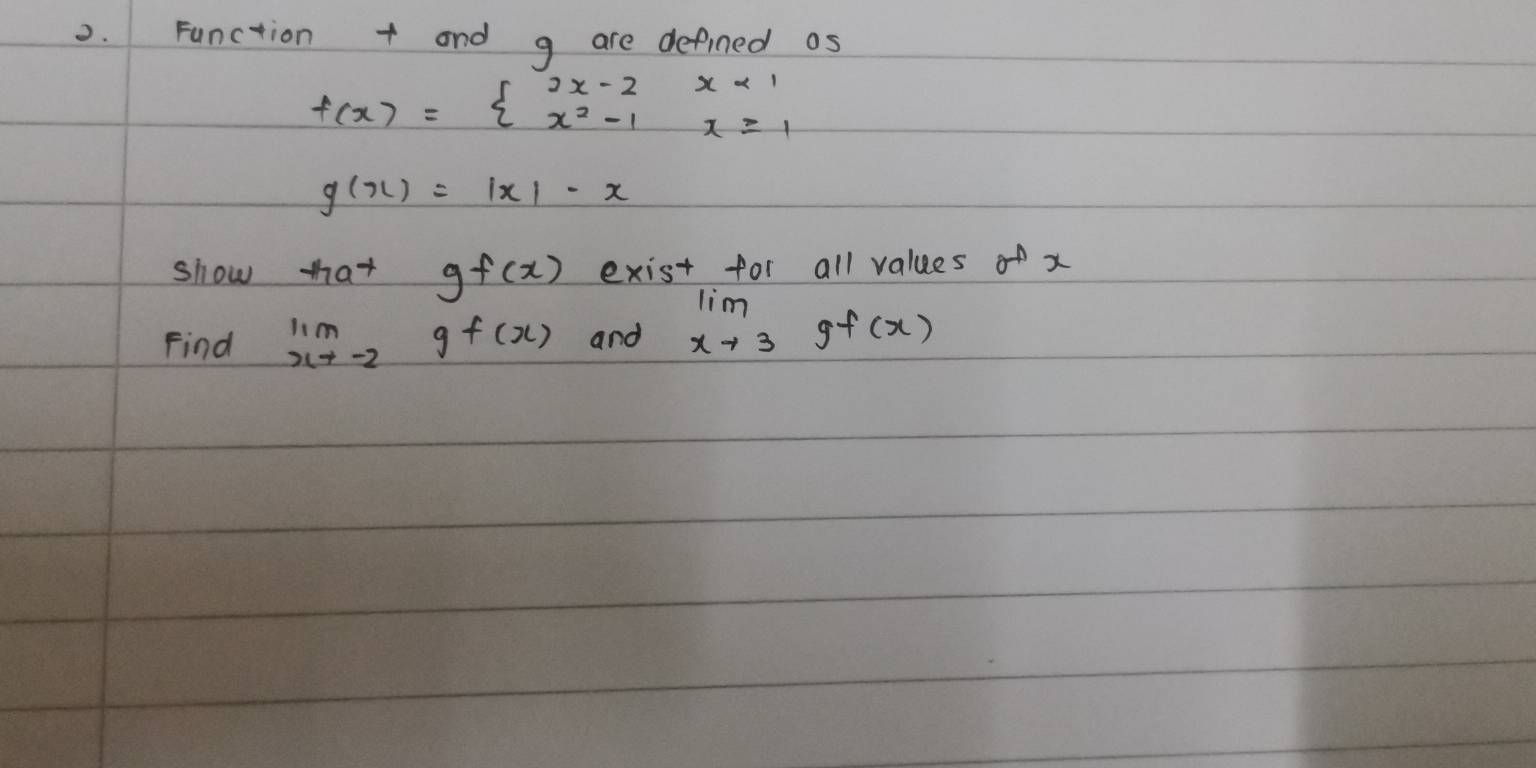 2. Function f and g are defined as
f(x) = { 2x - 2 x < 1
x² - 1 x ≥ 1
g(x) = |x| - x
show that gf(x) exist for all values of x
Find lim x→ -2 gf(x) and lim x→ 3 gf(x)